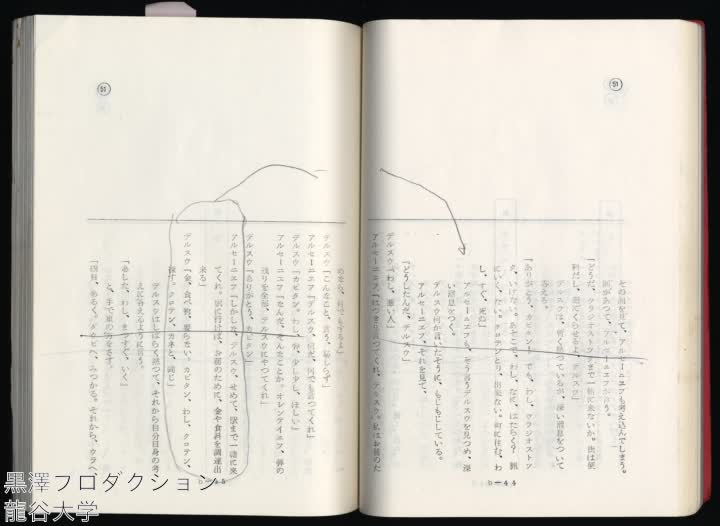 51
その図を見て、アルセーニエフも考え込んでしまう。
間があって、アルセーニエフが言う。
「どうだ、ウラジオストクまで一緒に来ないか。街は便利だし、楽にくらせるよ、デルスウ」
デルスウは、暫く黙っているが、深い溜息をついて答える。
「ありがとう、カピタン！　でも、わし、ウラジオストク、いけない。あそこで、わし、なに、はたらく？　猟にいく、ない。クロテンとり、出来ない。町に住む、わし、すぐ、死ぬ」
アルセーニエフも、そう言うデルスウを見つめ、深い溜息をつく。
デルスウ何か言いたそうに、もじもじしている。
アルセーニエフ、それを見て、
「どうしたんだ、デルスウ」
デルスウ「わし、悪い人」
アルセーニエフ「はっきり言ってくれ、デルスウ。私はお前のた
b—44
51
めなら、何でもするよ」
デルスウ「こんなこと、言う、恥しらず」
アルセーニエフ「デルスウ、何だ、何でも言ってくれ」
デルスウ「カピタン。わし、弾、少し少し、ほしい」
アルセーニエフ「なんだ、そんなことか。オレンテイエフ、弾の残りを全部、デルスウにやってくれ」
デルスウ「ありがとう、カピタン」
アルセーニエフ「しかしな、デルスウ、せめて、駅まで一緒に来てくれ。駅に行けば、お前のために、金や食料を調達出来る」
デルスウ「金、食べ物、要らない。カピタン、わし、クロテン、探す。クロテン、カネと、同じ」
デルスウはしばらく黙って、それから自分自身の考えに答えるように言う。
「あした、わし、まっすぐ、いく」
と、手で東の方をさす。
「四日、あるく。ダウビヘ、みつかる。それから、ウラヘ、
b—45
黒澤プロダクション
龍谷大学